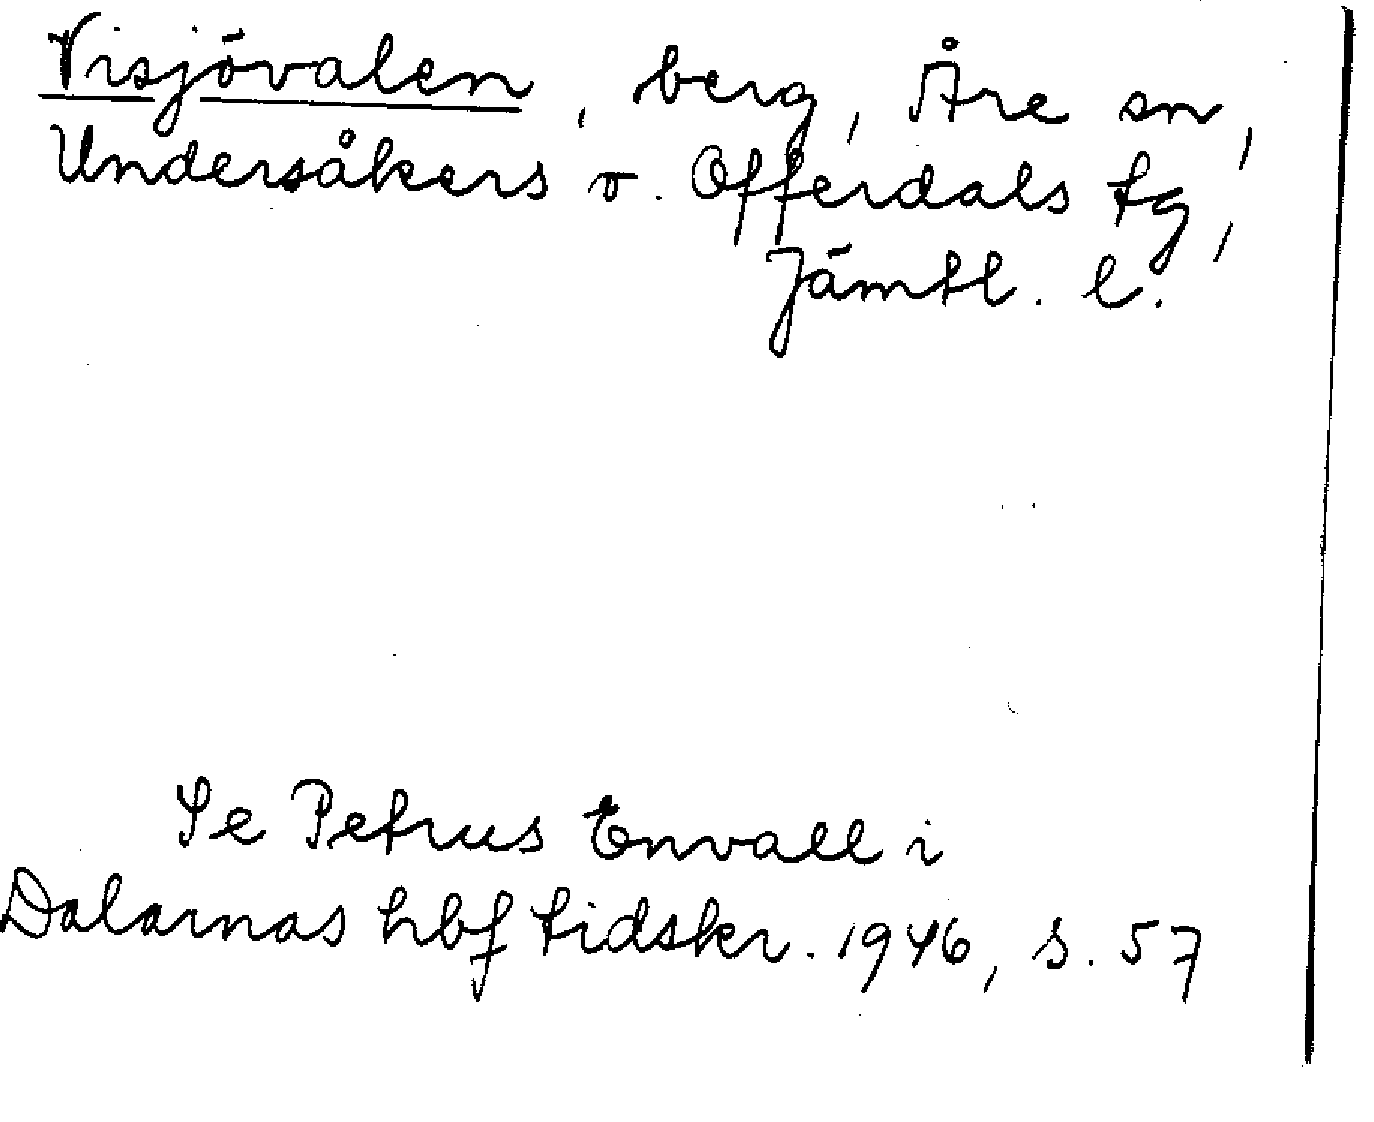 Visjövalen, berg, Åre sn,
Undersåkers o. Offerdals tg,
Jämtl. l.
Se Petrus Envall i
Dalarnas hbf tidskr. 1946, s. 57